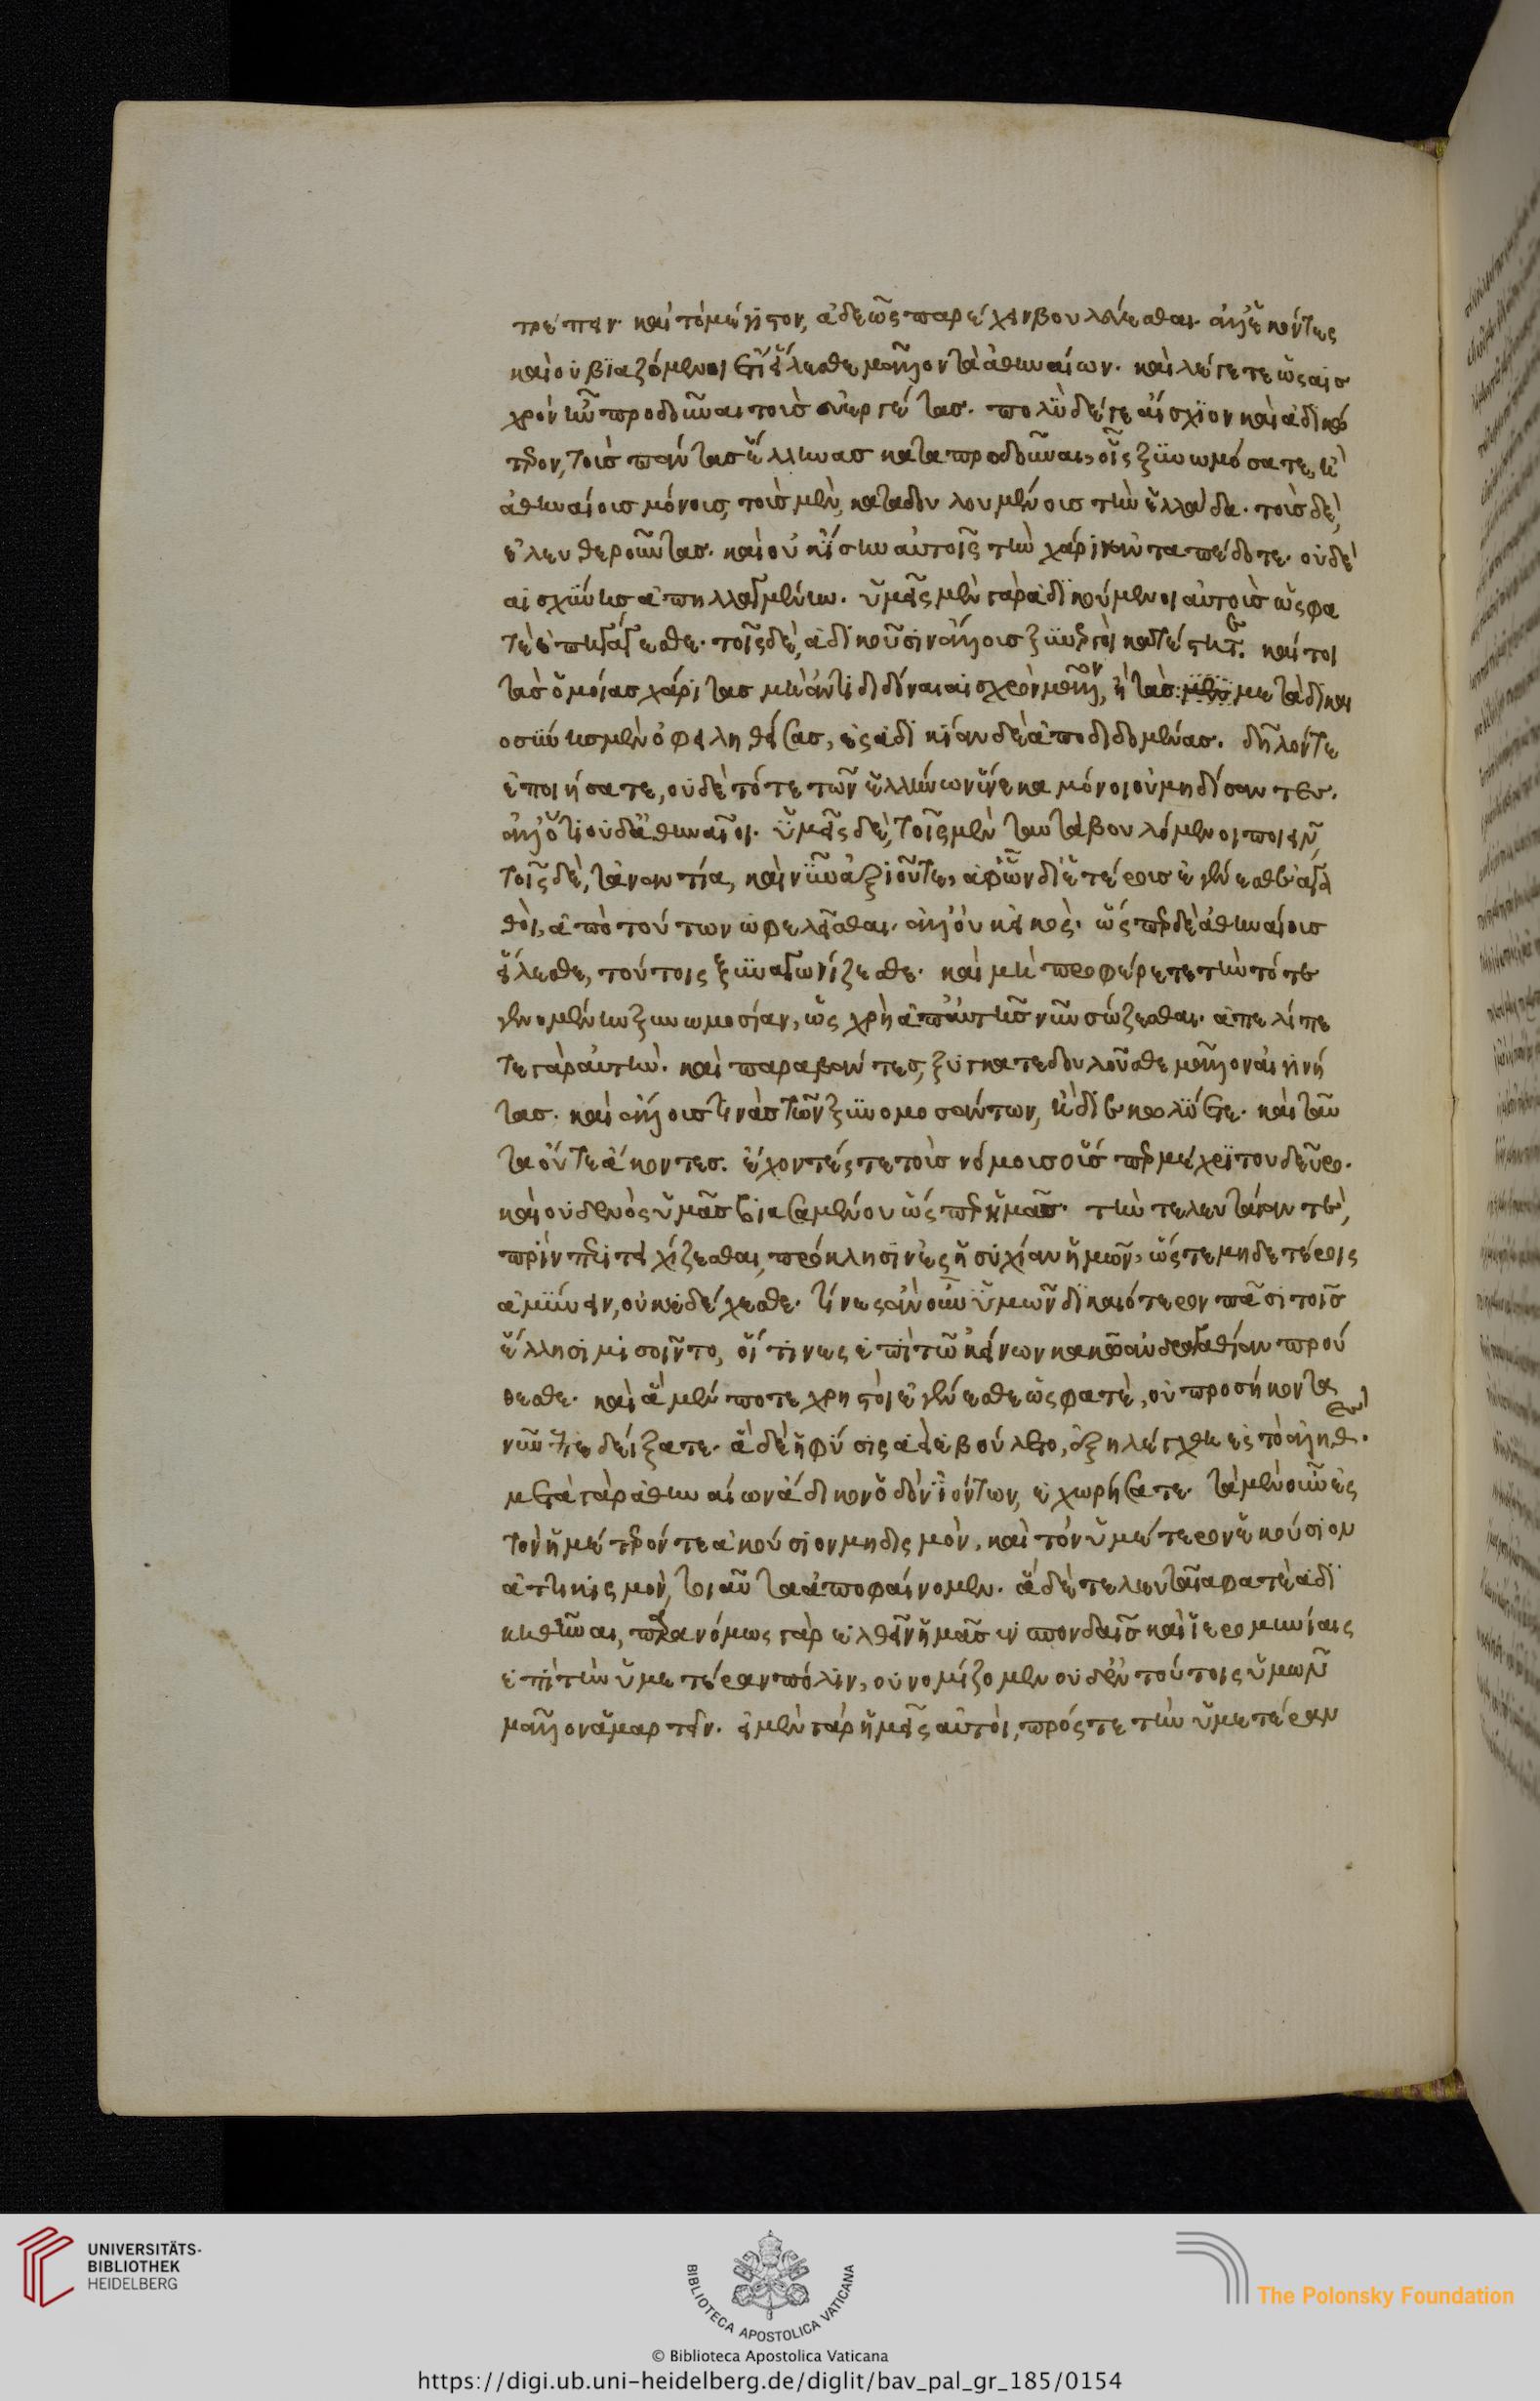 τρέπειν καὶ τὸ μέγιστον, ἀδεῶς παρέχειν βουλεύεσθαι. ἀλλ' ἑκόντες
καὶ οὐ βιαζόμενοι ἔτι εἵλεσθε μᾶλλον τὰ ἀθηναίων. καὶ λέγετε ὡς αἰσ
χρὸν ἦν προδοῦναι τοὺς εὐεργέτας. πολὺ δέ γε αἴσχιον καὶ ἀδικώ
τερον, τοὺς πάντας ἕλληνας καταπροδοῦναι, οἷς ξυνωμόσατε, ἢ
ἀθηναίους μόνους, τοὺς μὲν, καταδουλουμένους τὴν ἑλλάδα. τοὺς δὲ,
ἐλευθεροῦντας. καὶ οὐκ ἴσην αὐτοῖς τὴν χάριν ἀνταπέδοτε. οὐδὲ
αἰσχύνης ἀπηλλαγμένην. ὑμεῖς μὲν γὰρ ἀδικούμενοι αὐτοὺς ὥς φα
τὲ ἐπηγάγεσθε. τοῖς δὲ, ἀδικοῦσιν ἄλλους ξυνεργοὶ κατέστητε. καίτοι
τὰς ὁμοίας χάριτας μὴ ἀντιδιδόναι αἰσχρὸν μᾶλλον, ἢ τὰς μετὰ δικαι
οσύνης μὲν ὀφειληθείσας, ἐς ἀδικίαν δὲ ἀποδιδομένας. δῆλόν τε
ἐποιήσατε, οὐδὲ τότε τῶν ἑλλήνων ἕνεκα μόνοι οὐ μηδίσαντες.
ἀλλ' ὅτι οὐδ' ἀθηναῖοι. ὑμεῖς δὲ, τοῖς μὲν ταυτὰ βουλόμενοι ποιεῖν,
τοῖς δὲ, τἀναντία, καὶ νῦν ἀξιοῦτε, ἀφ' ὧν δι' ἑτέρους ἐγένεσθε ἀγα
θοὶ, ἀπὸ τούτων ὠφελεῖσθαι. ἀλλ' οὐκ εἰκὸς. ὥσπερ δὲ ἀθηναίους
εἵλεσθε, τούτοις ξυναγωνίζεσθε. καὶ μὴ προφέρετε τὴν τότε
γενομένην ξυνωμοσίαν, ὡς χρὴ ἀπ' αὐτῆς νῦν σώζεσθαι. ἀπελίπε
τε γὰρ αὐτὴν. καὶ παραβάντες, ξυγκατεδουλοῦσθε μᾶλλον αἰγινή
τας. καὶ ἄλλους τινὰς τῶν ξυνομοσάντων, ἢ διεκωλύετε. καὶ ταῦ
τα οὔτε ἄκοντες. ἔχοντές τε τοὺς νόμους οὕσπερ μέχρι τοῦ δεῦρο.
καὶ οὐδενὸς ὑμᾶς βιασαμένου ὥσπερ ἡμᾶς. τὴν τελευταίαν τε,
πρὶν περιτειχίζεσθαι, πρόκλησιν ἐς ἡσυχίαν ἡμῶν, ὥστε μηδετέροις
ἀμύνειν, οὐκ ἐδέχεσθε. τίνες ἂν οὖν ὑμῶν δικαιότερον πᾶσι τοῖς
ἕλλησι μισοῖντο, οἵτινες ἐπὶ τῷ ἐκείνων κακῷ ἀνδραγαθίαν προὔ
θεσθε. καὶ ἃ μέν ποτε χρηστοὶ ἐγένεσθε ὡς φατὲ, οὐ προσήκοντα
νῦν ἐπεδείξατε. ἃ δὲ ἡ φύσις αἰεὶ ἐβούλετο, ἐξηλέγχθη ἐς τὸ ἀληθές.
μετὰ γὰρ ἀθηναίων ἄδικον ὁδὸν ἰόντων, ἐχωρήσατε. τὰ μὲν οὖν ἐς
τὸν ἡμέτερόν τε ἀκούσιον μηδισμὸν, καὶ τὸν ὑμέτερον ἑκούσιον
ἀττικισμὸν, τοιαῦτα ἀποφαίνομεν. ἃ δὲ τελευταῖα φατὲ ἀδι
κηθῆναι, παρανόμως γὰρ ἐλθεῖν ἡμᾶς ἐν σπονδαῖς καὶ ἱερομηνίαις
ἐπὶ τὴν ὑμετέραν πόλιν, οὐ νομίζομεν οὐδ' ἐν τούτοις ὑμῶν
μᾶλλον ἁμαρτεῖν. εἰ μὲν γὰρ ἡμεῖς αὐτοὶ, πρός τε τὴν ὑμετέραν
UNIVERSITÄTS-
BIBLIOTHEK
HEIDELBERG
BIBLIOTECA APOSTOLICA VATICANA
The Polonsky Foundation
© Biblioteca Apostolica Vaticana
https://digi.ub.uni-heidelberg.de/diglit/bav_pal_gr_185/0154